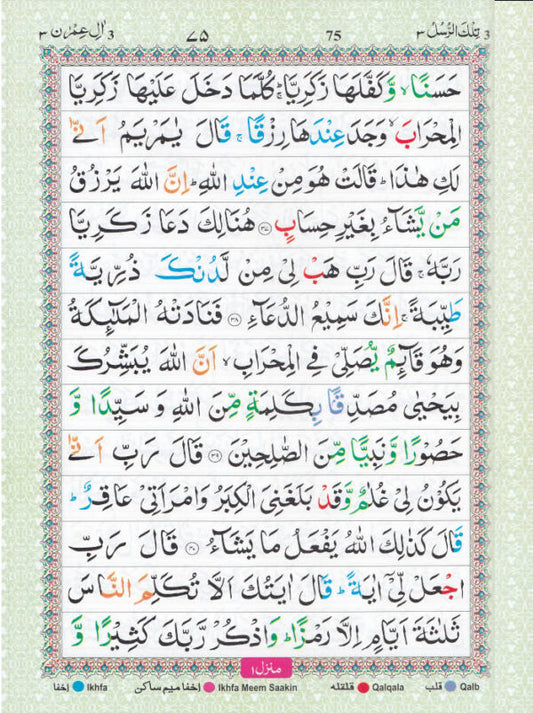 تِلْكَ الرُّسُلُ ٣ 3 75 ٧٥ 3 اٰلِ عِمْرٰن ٣
حَسَنًا ۙ وَّكَفَّلَهَا زَكَرِيَّا ؕ كُلَّمَا دَخَلَ عَلَيْهَا زَكَرِيَّا
الْمِحْرَابَ ۙ وَجَدَ عِنْدَهَا رِزْقًا ۚ قَالَ يٰمَرْيَمُ اَنّٰى
لَكِ هٰذَا ؕ قَالَتْ هُوَ مِنْ عِنْدِ اللّٰهِ ؕ اِنَّ اللّٰهَ يَرْزُقُ
مَنْ يَّشَآءُ بِغَيْرِ حِسَابٍ ﴿۳۷﴾ هُنَالِكَ دَعَا زَكَرِيَّا
رَبَّهٗ ۚ قَالَ رَبِّ هَبْ لِىْ مِنْ لَّدُنْكَ ذُرِّيَّةً
طَيِّبَةً ۚ اِنَّكَ سَمِيْعُ الدُّعَآءِ ﴿۳۸﴾ فَنَادَتْهُ الْمَلٰٓئِكَةُ
وَهُوَ قَآئِمٌ يُّصَلِّىْ فِى الْمِحْرَابِ ۙ اَنَّ اللّٰهَ يُبَشِّرُكَ
بِيَحْيٰى مُصَدِّقًۢا بِكَلِمَةٍ مِّنَ اللّٰهِ وَ سَيِّدًا وَّ
حَصُوْرًا وَّنَبِيًّا مِّنَ الصّٰلِحِيْنَ ﴿۳۹﴾ قَالَ رَبِّ اَنّٰى
يَكُوْنُ لِىْ غُلٰمٌ وَّقَدْ بَلَغَنِىَ الْكِبَرُ وَامْرَاَتِىْ عَاقِرٌ ؕ
قَالَ كَذٰلِكَ اللّٰهُ يَفْعَلُ مَا يَشَآءُ ﴿۴۰﴾ قَالَ رَبِّ
اجْعَلْ لِّىْۤ اٰيَةً ؕ قَالَ اٰيَتُكَ اَلَّا تُكَلِّمَ النَّاسَ
ثَلٰثَةَ اَيَّامٍ اِلَّا رَمْزًا ؕ وَاذْكُرْ رَّبَّكَ كَثِيْرًا وَّ
منزل ١
اخفا Ikhfa اخفا میم ساکن Ikhfa Meem Saakin قلقله Qalqala قلب Qalb